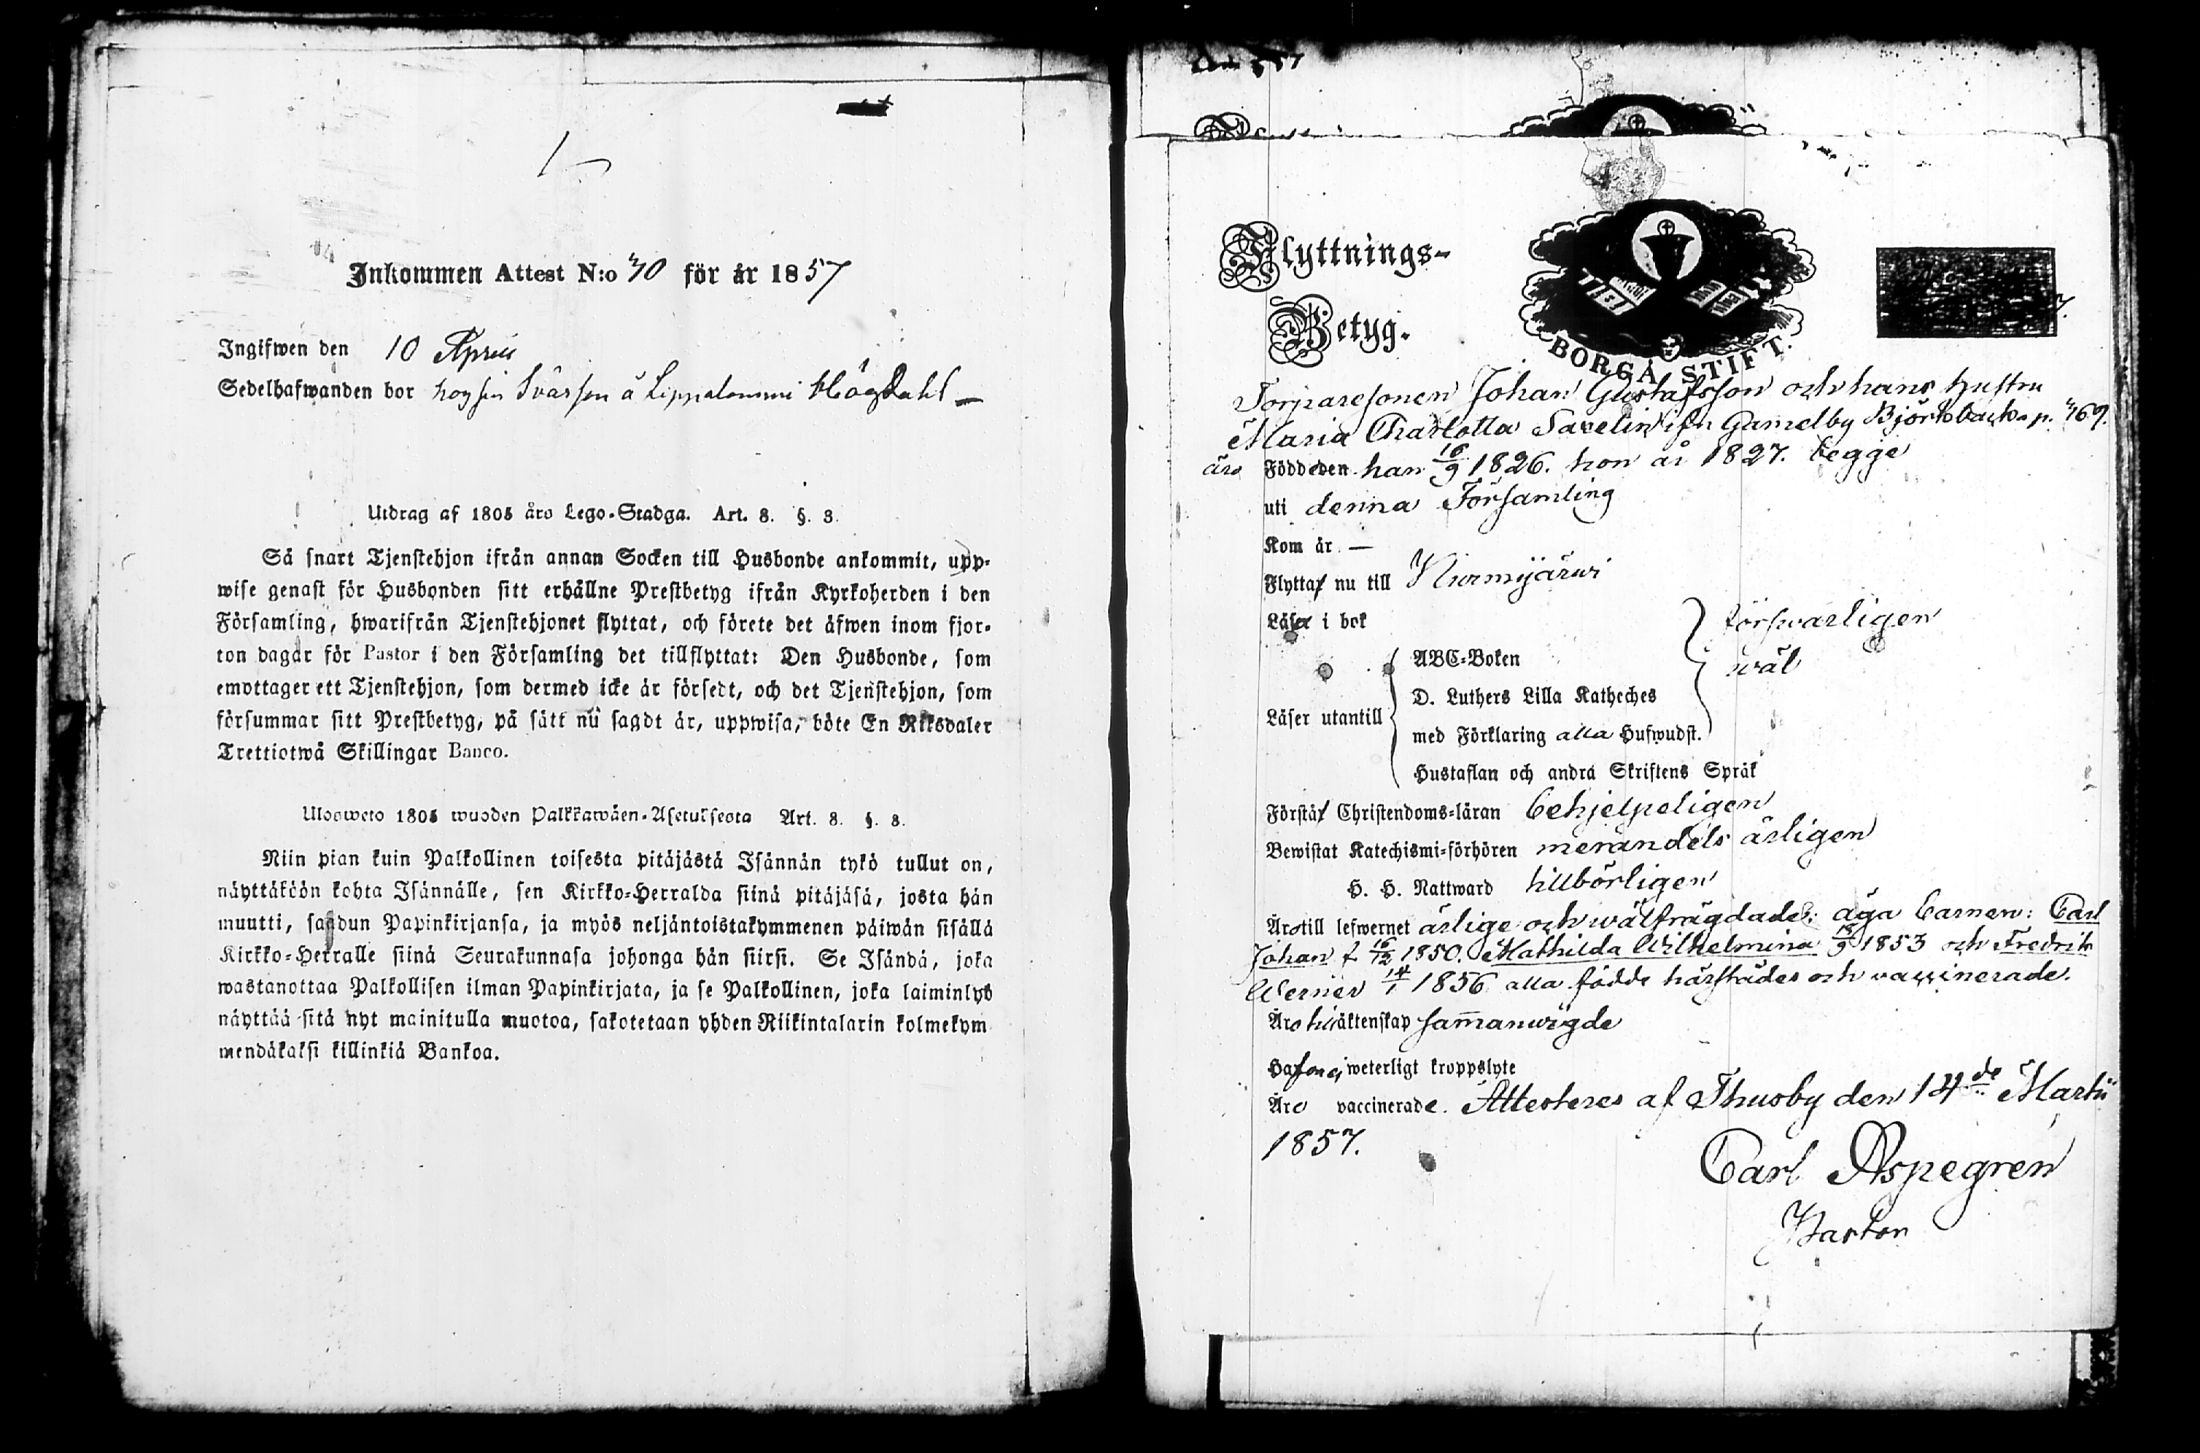 Inkommen Attest N:o 30 för år 1857
Ingifwen den 10 April
Sedelhafwanden bor hos sin Swärson å Lippalommi Högdahl
Utdrag af 1805 års Lego-Stadga. Art. 8. §. 3.
Så snart Tjenstehjon ifrån annan Socken till Husbonde ankommit, upp-
wise genast för Husbonden sitt erhållne Prestbetyg ifrån Kyrkoherden i den
Församling, hwarifrån Tjenstehjonet flyttat, och förete det äfwen inom fjor-
ton dagar för Pastor i den Församling det tillflyttat: Den Husbonde, som
emottager ett Tjenstehjon, som dermed icke är försedt, och det Tjenstehjon, som
försummar sitt Prestbetyg, på sätt nu sagdt är, uppwisa, böte En Riksdaler
Trettiotwå Skillingar Banco.
Ulosweto 1805 wuoden Palkkawäen-Asetuksesta Art. 8. §. 3.
Niin pian kuin Palkollinen toisesta pitäjästä Isännän tykö tullut on,
näyttäköön kohta Isännälle, sen Kirkko-Herralda siinä pitäjäsä, josta hän
muutti, saadun Papinkirjansa, ja myös neljäntoistakymmenen päiwän sisällä
Kirkko-Herralle siinä Seurakunnasa johonga hän siirsi. Se Isändä, joka
wastanottaa Palkollisen ilman Papinkirjata, ja se Palkollinen, joka laiminlyö
näyttää sitä nyt mainitulla muotoa, sakotetaan yhden Riikintalarin kolmekym
mendäkaksi killinkiä Bankoa.
Flyttnings-
Betyg.
BORGÅ STIFT.
Torparesonen Johan Gustafsson och hans hustru
Maria Charlotta Savelin ifrn Gamelby Björkbacka p. 469.
äro Födde den han 16/9 1826. hon år 1827. begge
uti denna Församling
Kom år —
Flytta nu till Nurmijärwi
Läsa i bok försvarligen
ABC-Boken wäl
D. Luthers Lilla Katheches
Läser utantill
med Förklaring alla Hufwudst.
Hustaflan och andra Skriftens Språk
Förstå Christendoms-läran behjelpeligen
Bewistat Katechismi-förhören merändels årligen
H. H. Nattward tillbörligen
Äro till lefwernet ärlige och wälfrägdade; äga barnen: Carl
Johan f. 16/12 1850. Mathilda Wilhelmina 18/9 1853 och Fredrik
Werner 14/1 1856 alla födde härstädes och vaccinerade.
Äro hwi äktenskap sammanwigde
Hafwa ej weterligt kroppslyte
Äro vaccinerade. Attesteres af Thusby den 14de Martii
1857.
Carl Aspegren
Pastor